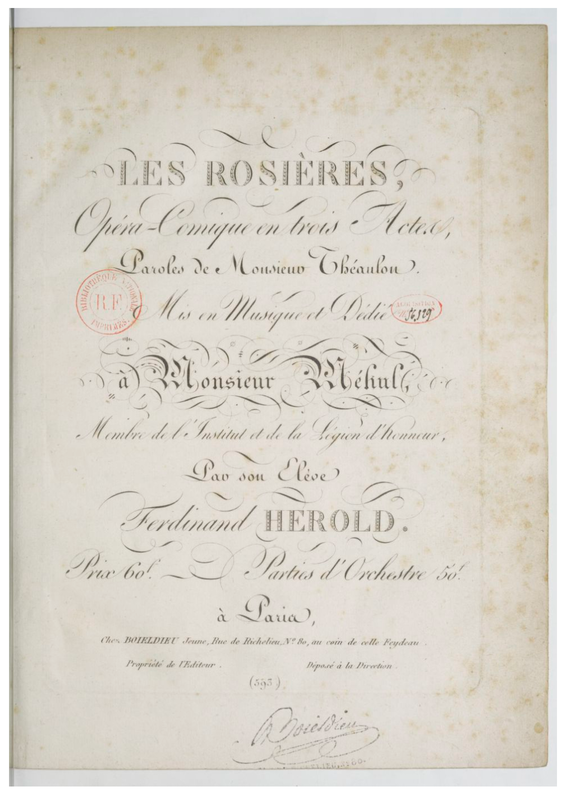 LES ROSIÈRES,
Opéra-Comique en trois Actes,
Paroles de Monsieur Théaulon.
Mis en Musique et Dédié
à Monsieur Méhul,
Membre de l'Institut et de la Légion d'Honneur,
Par son Elève
Ferdinand HEROLD.
Prix 60f. Parties d'Orchestre 50f.
à Paris,
Chez BOIELDIEU Jeune, Rue de Richelieu, No. 80, au coin de celle Feydeau.
Propriété de l'Editeur. Déposé à la Direction.
(393)
BIBLIOTHÈQUE
R.F.
IMPRIMÉS
Boieldieu